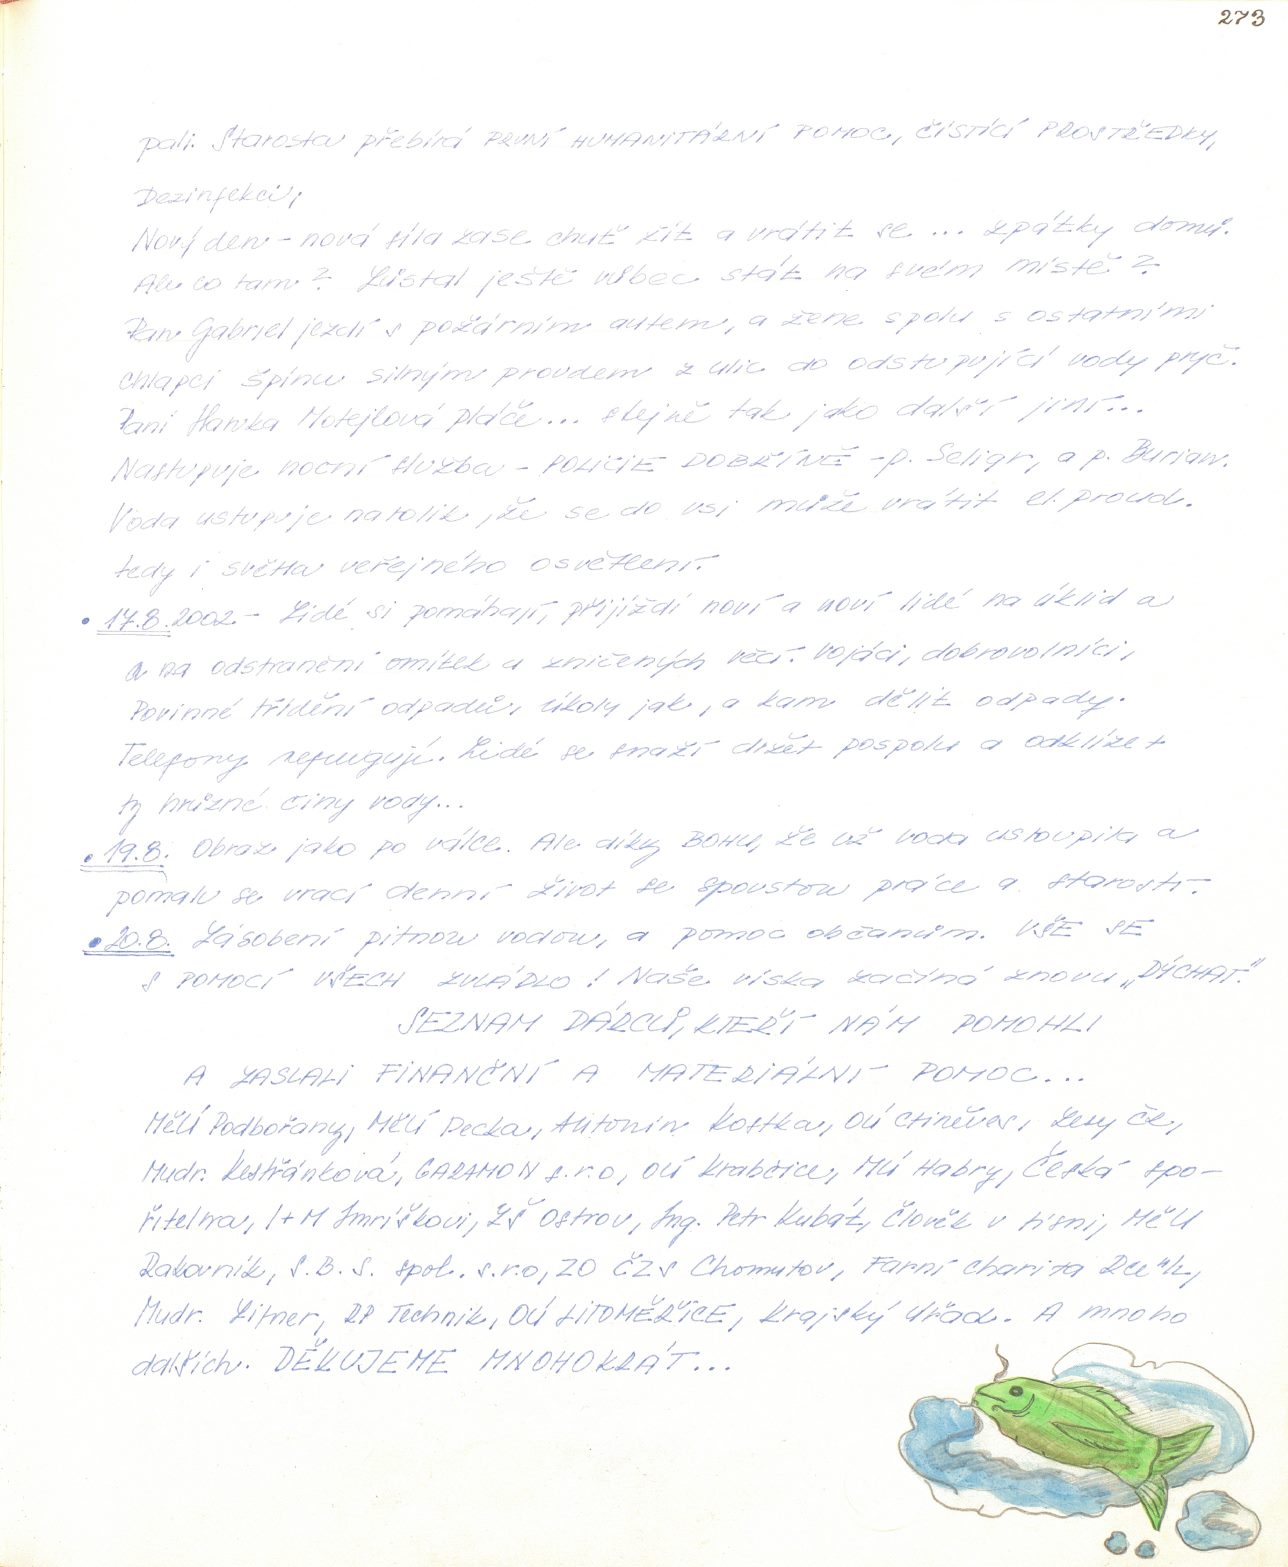 273
pali. Starosta přebírá PRVNÍ HUMANITÁRNÍ POMOC, ČISTÍCÍ PROSTŘEDKY,
Dezinfekci,
Nový den - nová síla zase chuť žít a vrátit se ... zpátky domů.
Ale co tam? Zůstal ještě vůbec stát na svém místě?
Pan Gabriel jezdí s požárním autem, a žene spolu s ostatními
chlapci špínu silným proudem z ulic do odstupující vody pryč.
Paní Hanka Motejlová pláče... stejně tak jako další jiní...
Nastupuje noční služba - POLICIE DOBŘÍNĚ - p. Seligr, a p. Burian.
Voda ustupuje natolik, že se do vsi může vrátit el. proud.
tedy i světla veřejného osvětlení.
• 17.8.2002 - Lidé si pomáhají, přijíždí noví a noví lidé na úklid a
a na odstranění omítek a zničených věcí. Vojáci, dobrovolníci,
Povinné třídění odpadů, úkoly jak, a kam dělit odpady.
Telefony nefungují. Lidé se snaží držet pospolu a odklízet
ty hrůzné činy vody...
• 19.8. Obraz jako po válce. Ale díky BOHU, že už voda ustoupila a
pomalu se vrací denní život se spoustou práce a starostí.
• 20.8. Zásobení pitnou vodou, a pomoc občanům. VŠE SE
S POMOCÍ VŠECH ZVLÁDLO! Naše víska začíná znovu „DÝCHAT."
SEZNAM DÁRCŮ, KTEŘÍ NÁM POMOHLI
A ZASLALI FINANČNÍ A MATERIÁLNÍ POMOC...
MěÚ Podbořany, MěÚ Pecka, Antonín Kostka, OÚ Ctiněves, Lesy ČR,
Mudr. Kestřánková, GARSMON s.r.o, OÚ Krabčice, MÚ Habry, Česká spo-
řitelna, I+M Smríškovi, ZŠ Ostrov, Ing. Petr Kubát, Člověk v tísni, MěÚ
Rakovník, S.B.S. spol. s.r.o, ZO ČZS Chomutov, Farní charita Rce n/L,
Mudr. Litner, RP Technik, OÚ LITOMĚŘICE, Krajský úřad. A mnoho
dalších. DĚKUJEME MNOHOKRÁT...